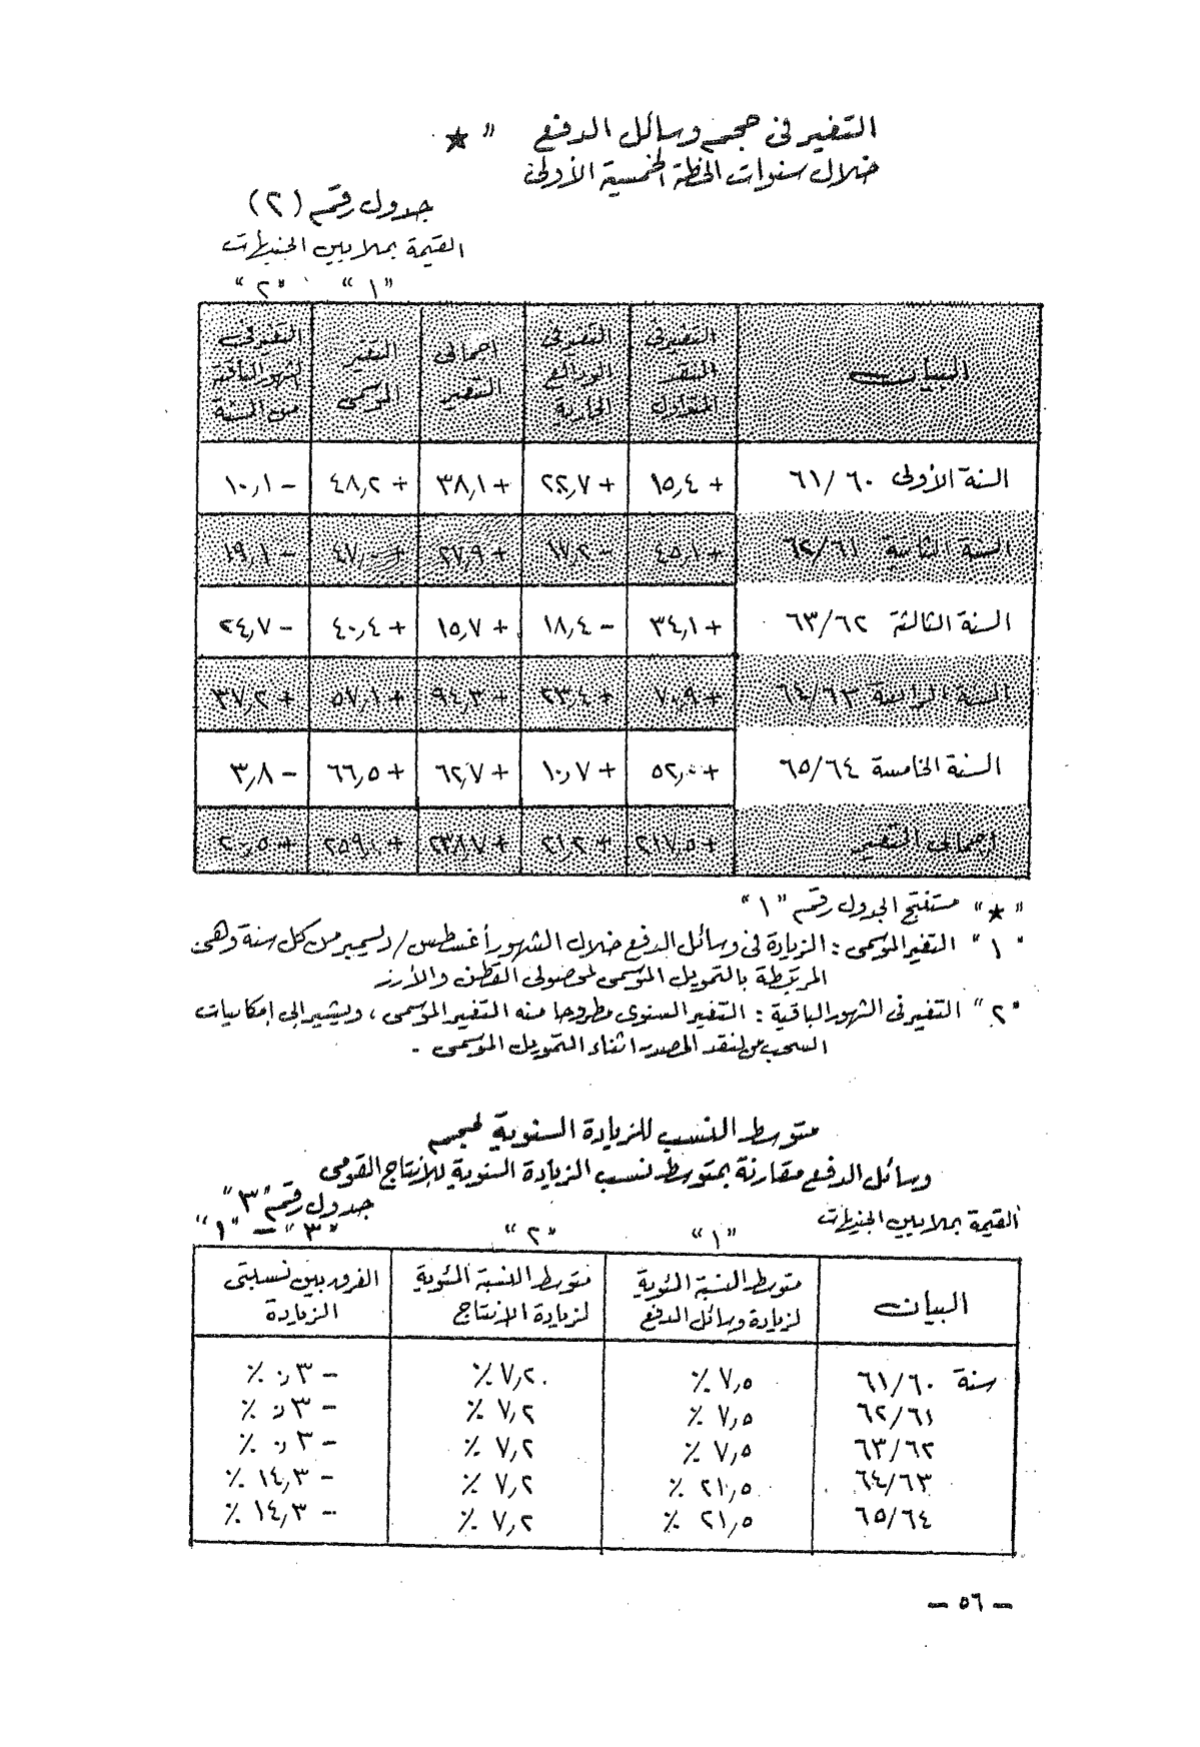 التغير فى حجم وسائل الدفع " ★
خلال سنوات الخطة الخمسية الأولى
جدول رقم (٢)
القيمة بملايين الجنيهات
"١" "٢"
البيان التغير فى النقد المتداول التغير فى الودائع الجارية اجمالى التغير التغير الموسمى التغير فى الشهور الباقية من السنة
السنة الأولى ٦١/٦٠ + ١٥,٤ + ٢٢,٧ + ٣٨,١ + ٤٨,٢ − ١٠,١
السنة الثانية ٦٢/٦١ + ٤٥,١ − ١٧,٢ + ٢٧,٩ + ٤٧,٠ − ١٩,١
السنة الثالثة ٦٣/٦٢ + ٣٤,١ − ١٨,٤ + ١٥,٧ + ٤٠,٤ − ٢٤,٧
السنة الرابعة ٦٤/٦٣ + ٧٠,٩ + ٢٣,٤ + ٩٤,٣ + ٥٧,١ + ٣٧,٢
السنة الخامسة ٦٥/٦٤ + ٥٢,٠ + ١٠,٧ + ٦٢,٧ + ٦٦,٥ − ٣,٨
إجمالى التغير + ٢١٧,٥ + ٢١,٢ + ٢٣٨,٧ + ٢٠,٥
"★" مستنتج الجدول رقم "١"
"١" التغير الموسمى : الزيادة فى وسائل الدفع خلال الشهور أغسطس/ديسمبر من كل سنة وهى
المرتبطة بالتمويل الموسمى لمحصولى القطن والأرز
"٢" التغير فى الشهور الباقية : التغير السنوى مطروحا منه التغير الموسمى ، ويشير الى إمكانيات
السحب من النقد المصدر اثناء التمويل الموسمى .
متوسط النسب للزيادة السنوية لحجم
وسائل الدفع مقارنة بمتوسط نسب الزيادة السنوية للإنتاج القومى
جدول رقم "٣"
القيمة بملايين الجنيهات
"١" "٢" "٣" − "١"
البيان متوسط النسبة المئوية لزيادة وسائل الدفع متوسط النسبة المئوية لزيادة الانتاج الفرق بين نسبتى الزيادة
سنة ٦١/٦٠ ٧,٥ ٪ ٧,٢ ٪ − ٣,٠ ٪
٦٢/٦١ ٧,٥ ٪ ٧,٢ ٪ − ٣,٠ ٪
٦٣/٦٢ ٧,٥ ٪ ٧,٢ ٪ − ٣,٠ ٪
٦٤/٦٣ ٢١,٥ ٪ ٧,٢ ٪ − ١٤,٣ ٪
٦٥/٦٤ ٢١,٥ ٪ ٧,٢ ٪ − ١٤,٣ ٪
− ٥٦ −